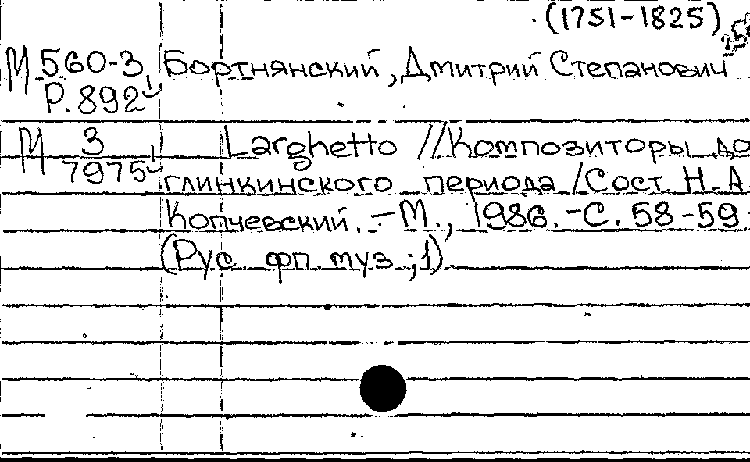 (1751-1825)
М 560-3 Бортнянский, Дмитрий Степанович
Р.892
М 3 Larghetto // Композиторы до
7975 глинкинского периода / Сост. Н. А.
Копчевский. – М., 1986. – С. 58-59.
(Рус. фп. муз.; 1)